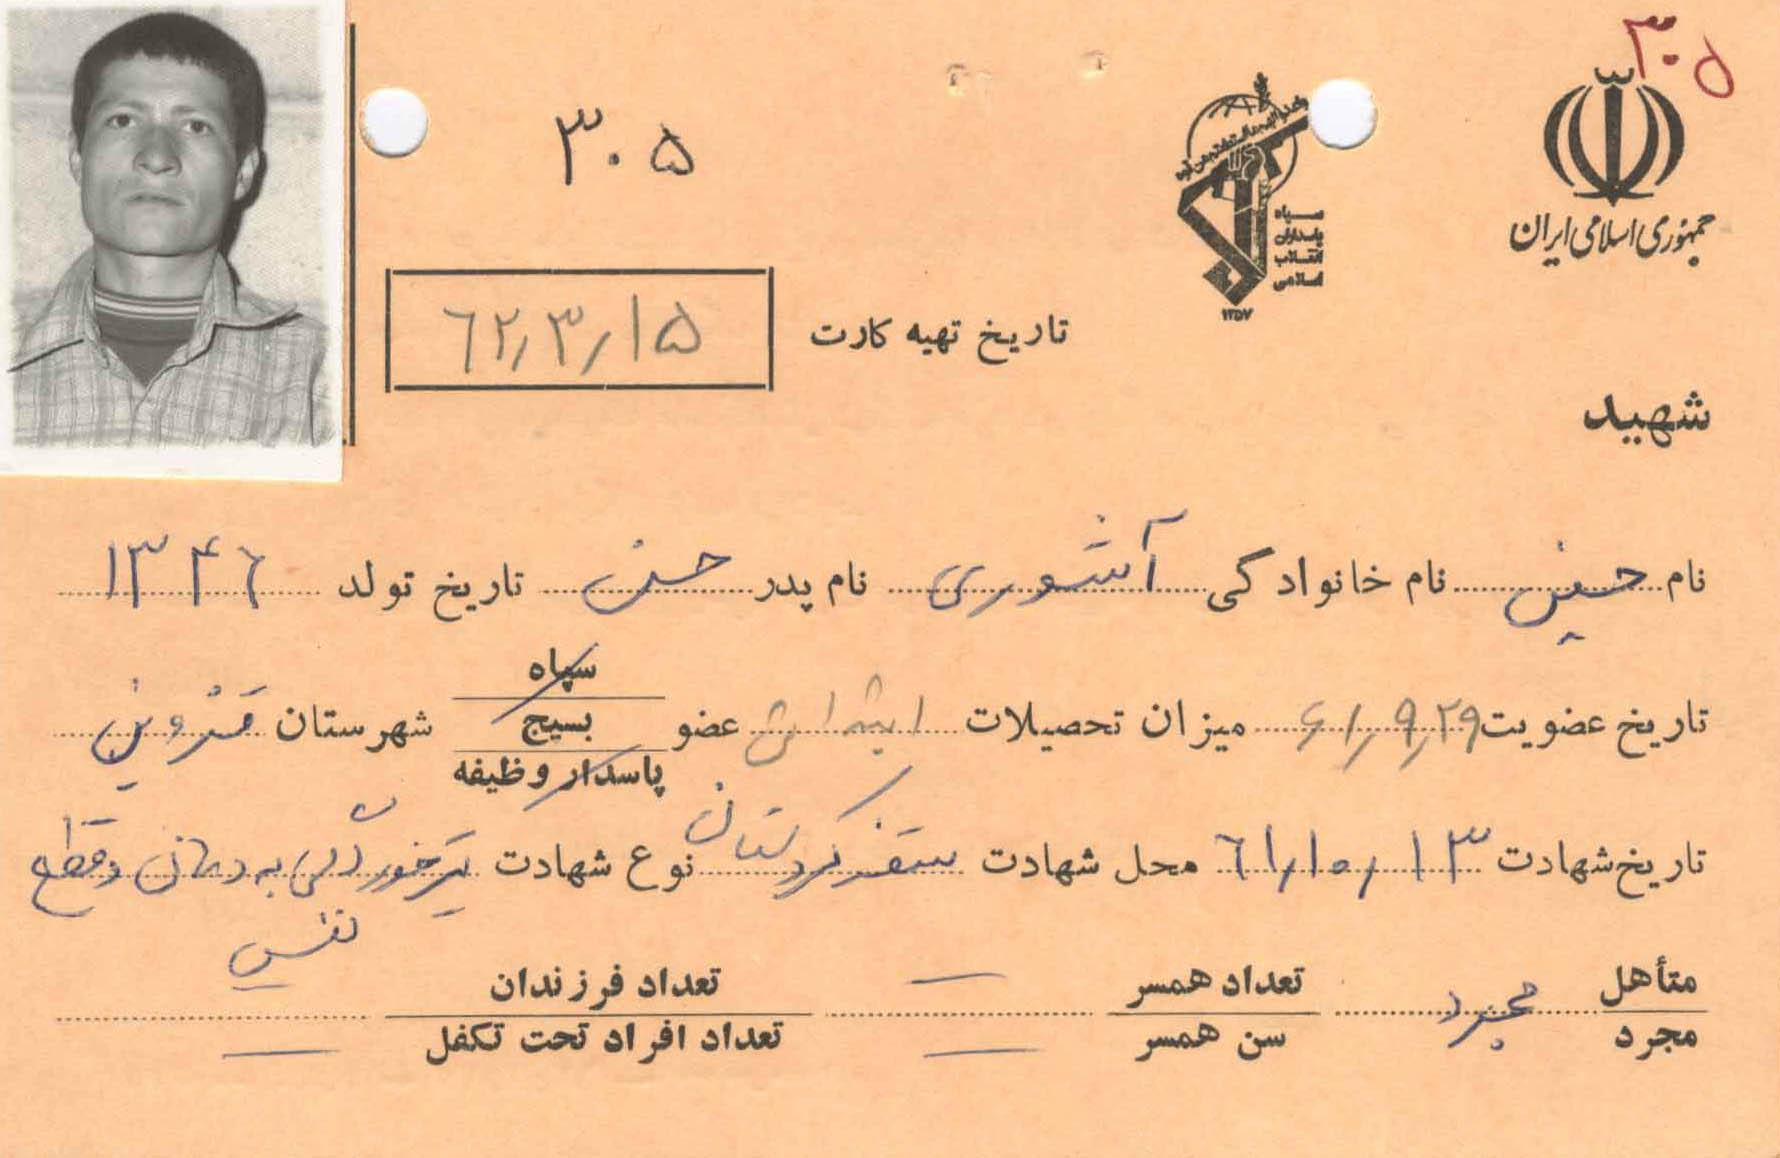 ۳۰۵
جمهوری اسلامی ایران
سپاه
پاسداران
انقلاب
اسلامی
۱۳۵۷
۳۰۵
تاریخ تهیه کارت ۶۲/۳/۱۵
شهید
نام حسین نام خانوادگی آشوری نام پدر حسن تاریخ تولد ۱۳۴۶
سپاه
تاریخ عضویت ۶۱/۹/۲۹ میزان تحصیلات عضو بسیج شهرستان قزوین
پاسدار وظیفه
تاریخ شهادت ۶۱/۱۰/۱۳ محل شهادت سقز کردستان نوع شهادت تیرخوردگی به دهان و قطع
نفس
متأهل مجرد تعداد همسر — تعداد فرزندان
مجرد سن همسر — تعداد افراد تحت تکفل —